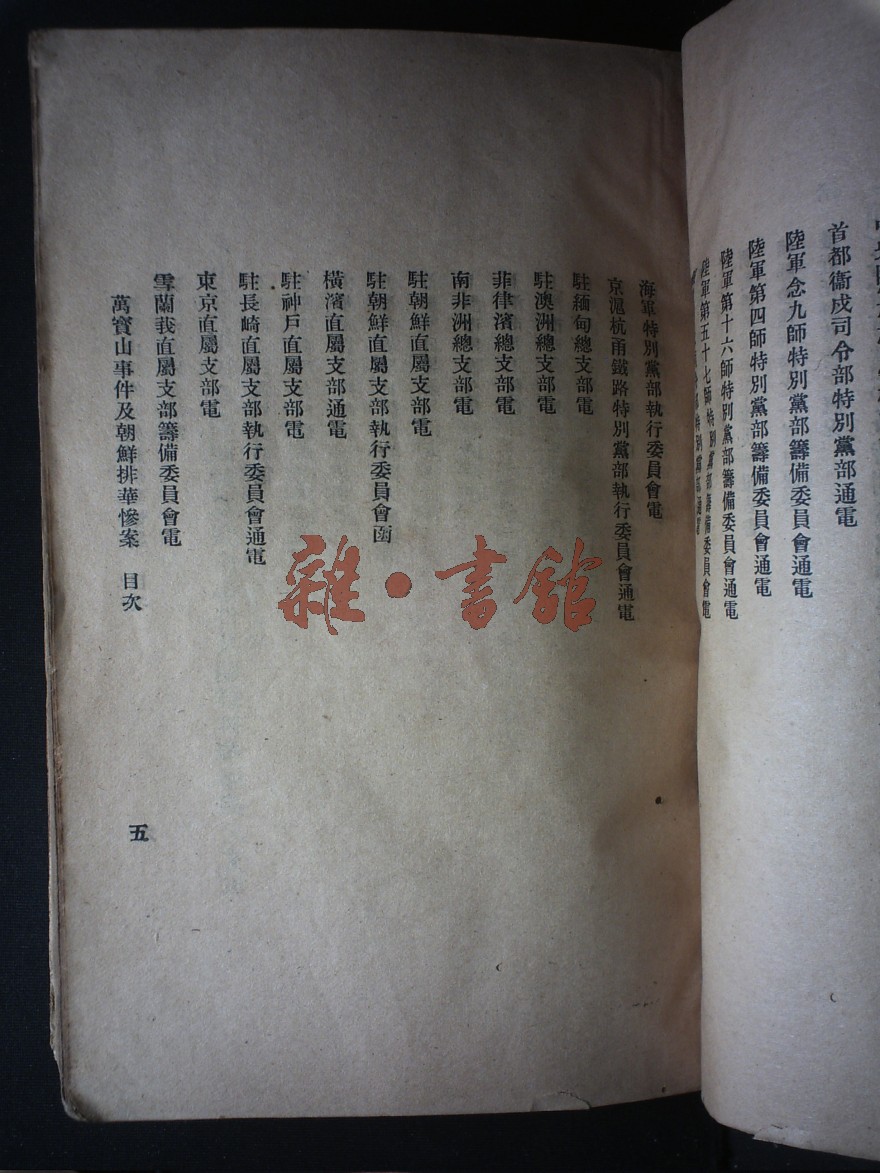 首都衞戍司令部特別黨部通電
陸軍念九師特別黨部籌備委員會通電
陸軍第四師特別黨部籌備委員會通電
陸軍第十六師特別黨部籌備委員會通電
陸軍第五十七師特別黨部籌備委員會電
海軍特別黨部執行委員會電
京滬杭甬鐵路特別黨部執行委員會通電
駐緬甸總支部電
駐澳洲總支部電
菲律濱總支部電
南非洲總支部電
駐朝鮮直屬支部電
駐朝鮮直屬支部執行委員會函
橫濱直屬支部通電
駐神戶直屬支部電
駐長崎直屬支部執行委員會通電
東京直屬支部電
雪蘭莪直屬支部籌備委員會電
萬寶山事件及朝鮮排華慘案 目次
五
雜·書館